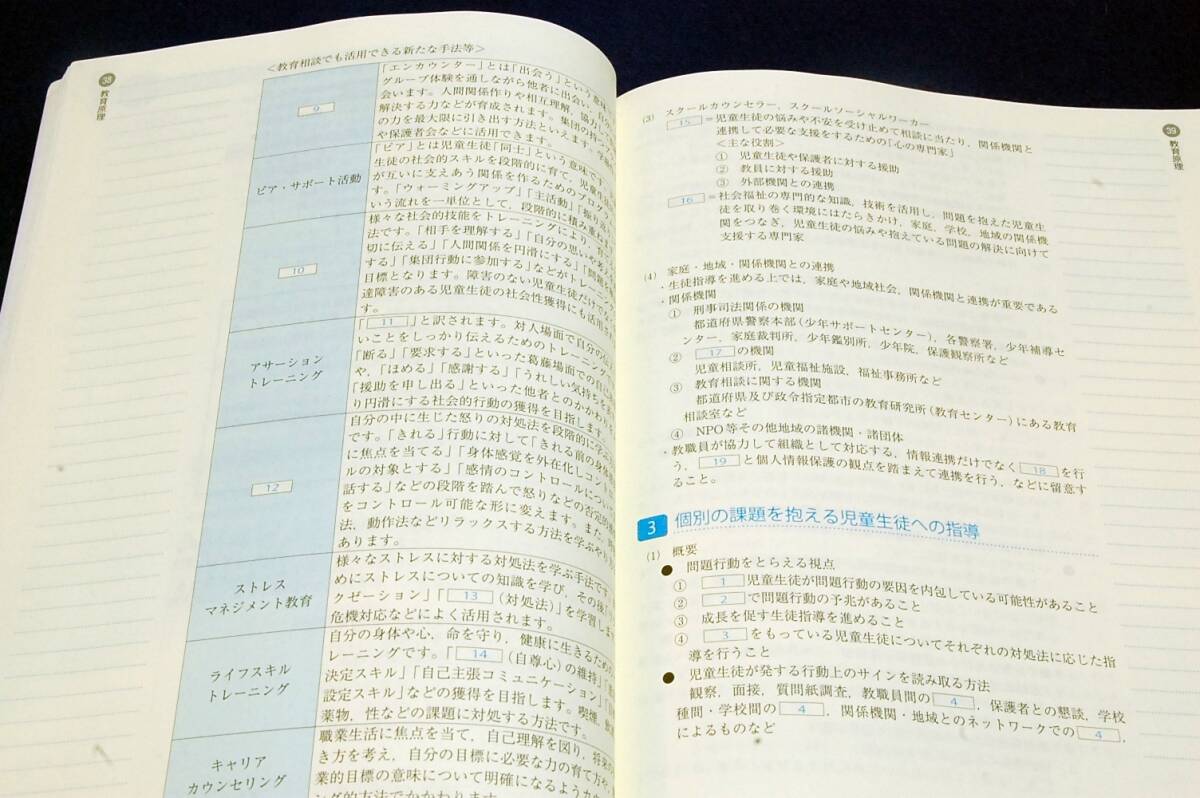 38
教育原理
<教育相談でも活用できる新たな手法等>
9
「エンカウンター」とは「出会う」という意味
グループ体験を通しながら他者に出会い,
会います。人間関係作りや相互理解,協力し
解決する力などが育成されます。集団の持つ
の力を最大限に引き出す方法といえます。学
や保護者会などに活用できます。
ピア・サポート活動
「ピア」とは児童生徒「同士」という意味です。
生徒の社会的スキルを段階的に育て,児童
が互いに支えあう関係を作るためのプログラ
す。「ウォーミングアップ」「主活動」「振り
いう流れを一単位として,段階的に積み重ね
10
様々な社会的技能をトレーニングにより,
法です。「相手を理解する」「自分の思いや考え
切に伝える」「人間関係を円滑にする」「問題を
する」「集団行動に参加する」などがトレーニン
目標となります。障害のない児童生徒だけでな
達障害のある児童生徒の社会性獲得にも活用さ
す。
アサーション
トレーニング
「 11 」と訳されます。対人場面で自分の伝
いことをしっかり伝えるためのトレーニング
「断る」「要求する」といった葛藤場面での自己
や,「ほめる」「感謝する」「うれしい気持ちを表
「援助を申し出る」といった他者とのかかわり
り円滑にする社会的行動の獲得を目指します。
12
自分の中に生じた怒りの対処法を段階的に学ぶ
です。「きれる」行動に対して「きれる前の身体
に焦点を当てる」「身体感覚を外在化しコント
ルの対象とする」「感情のコントロールについ
話する」などの段階を踏んで怒りなどの否定的
をコントロール可能な形に変えます。また,
法,動作法などリラックスする方法を学ぶやり方
あります。
ストレス
マネジメント教育
様々なストレスに対する対処法を学ぶ手法です。
めにストレスについての知識を学び,その後
クゼーション」「 13 (対処法)」を学習しま
危機対応などによく活用されます。
ライフスキル
トレーニング
自分の身体や心,命を守り,健康に生きるため
レーニングです。「 14 (自尊心)の維持」
決定スキル」「自己主張コミュニケーション」「
設定スキル」などの獲得を目指します。喫煙,
薬物,性などの課題に対処する方法です。
キャリア
カウンセリング
職業生活に焦点を当て,自己理解を図り,将来
き方を考え,自分の目標に必要な力の育て方や,
業的目標の意味について明確になるように
ング的方法でかかわります。
39
教育原理
(3) スクールカウンセラー,スクールソーシャルワーカー
15 =児童生徒の悩みや不安を受け止めて相談に当たり,関係機関と
連携して必要な支援をするための「心の専門家」
<主な役割>
① 児童生徒や保護者に対する援助
② 教員に対する援助
③ 外部機関との連携
16 =社会福祉の専門的な知識,技術を活用し,問題を抱えた児童生
徒を取り巻く環境にはたらきかけ,家庭,学校,地域の関係機
関をつなぎ,児童生徒の悩みや抱えている問題の解決に向けて
支援する専門家
(4) 家庭・地域・関係機関との連携
・生徒指導を進める上では,家庭や地域社会,関係機関と連携が重要である
・関係機関
① 刑事司法関係の機関
都道府県警察本部(少年サポートセンター),各警察署,少年補導セ
ンター,家庭裁判所,少年鑑別所,少年院,保護観察所など
② 17 の機関
児童相談所,児童福祉施設,福祉事務所など
③ 教育相談に関する機関
都道府県及び政令指定都市の教育研究所(教育センター)にある教育
相談室など
④ NPO等その他地域の諸機関・諸団体
・教職員が協力して組織として対応する,情報連携だけでなく 18 を行
う, 19 と個人情報保護の観点を踏まえて連携を行う,などに留意す
ること。
3 個別の課題を抱える児童生徒への指導
(1) 概要
● 問題行動をとらえる視点
① 1 児童生徒が問題行動の要因を内包している可能性があること
② 2 で問題行動の予兆があること
③ 成長を促す生徒指導を進めること
④ 3 をもっている児童生徒についてそれぞれの対処法に応じた指
導を行うこと
● 児童生徒が発する行動上のサインを読み取る方法
観察,面接,質問紙調査,教職員間の 4 ,保護者との懇談,学校
種間・学校間の 4 ,関係機関・地域とのネットワークでの 4 ,
によるものなど